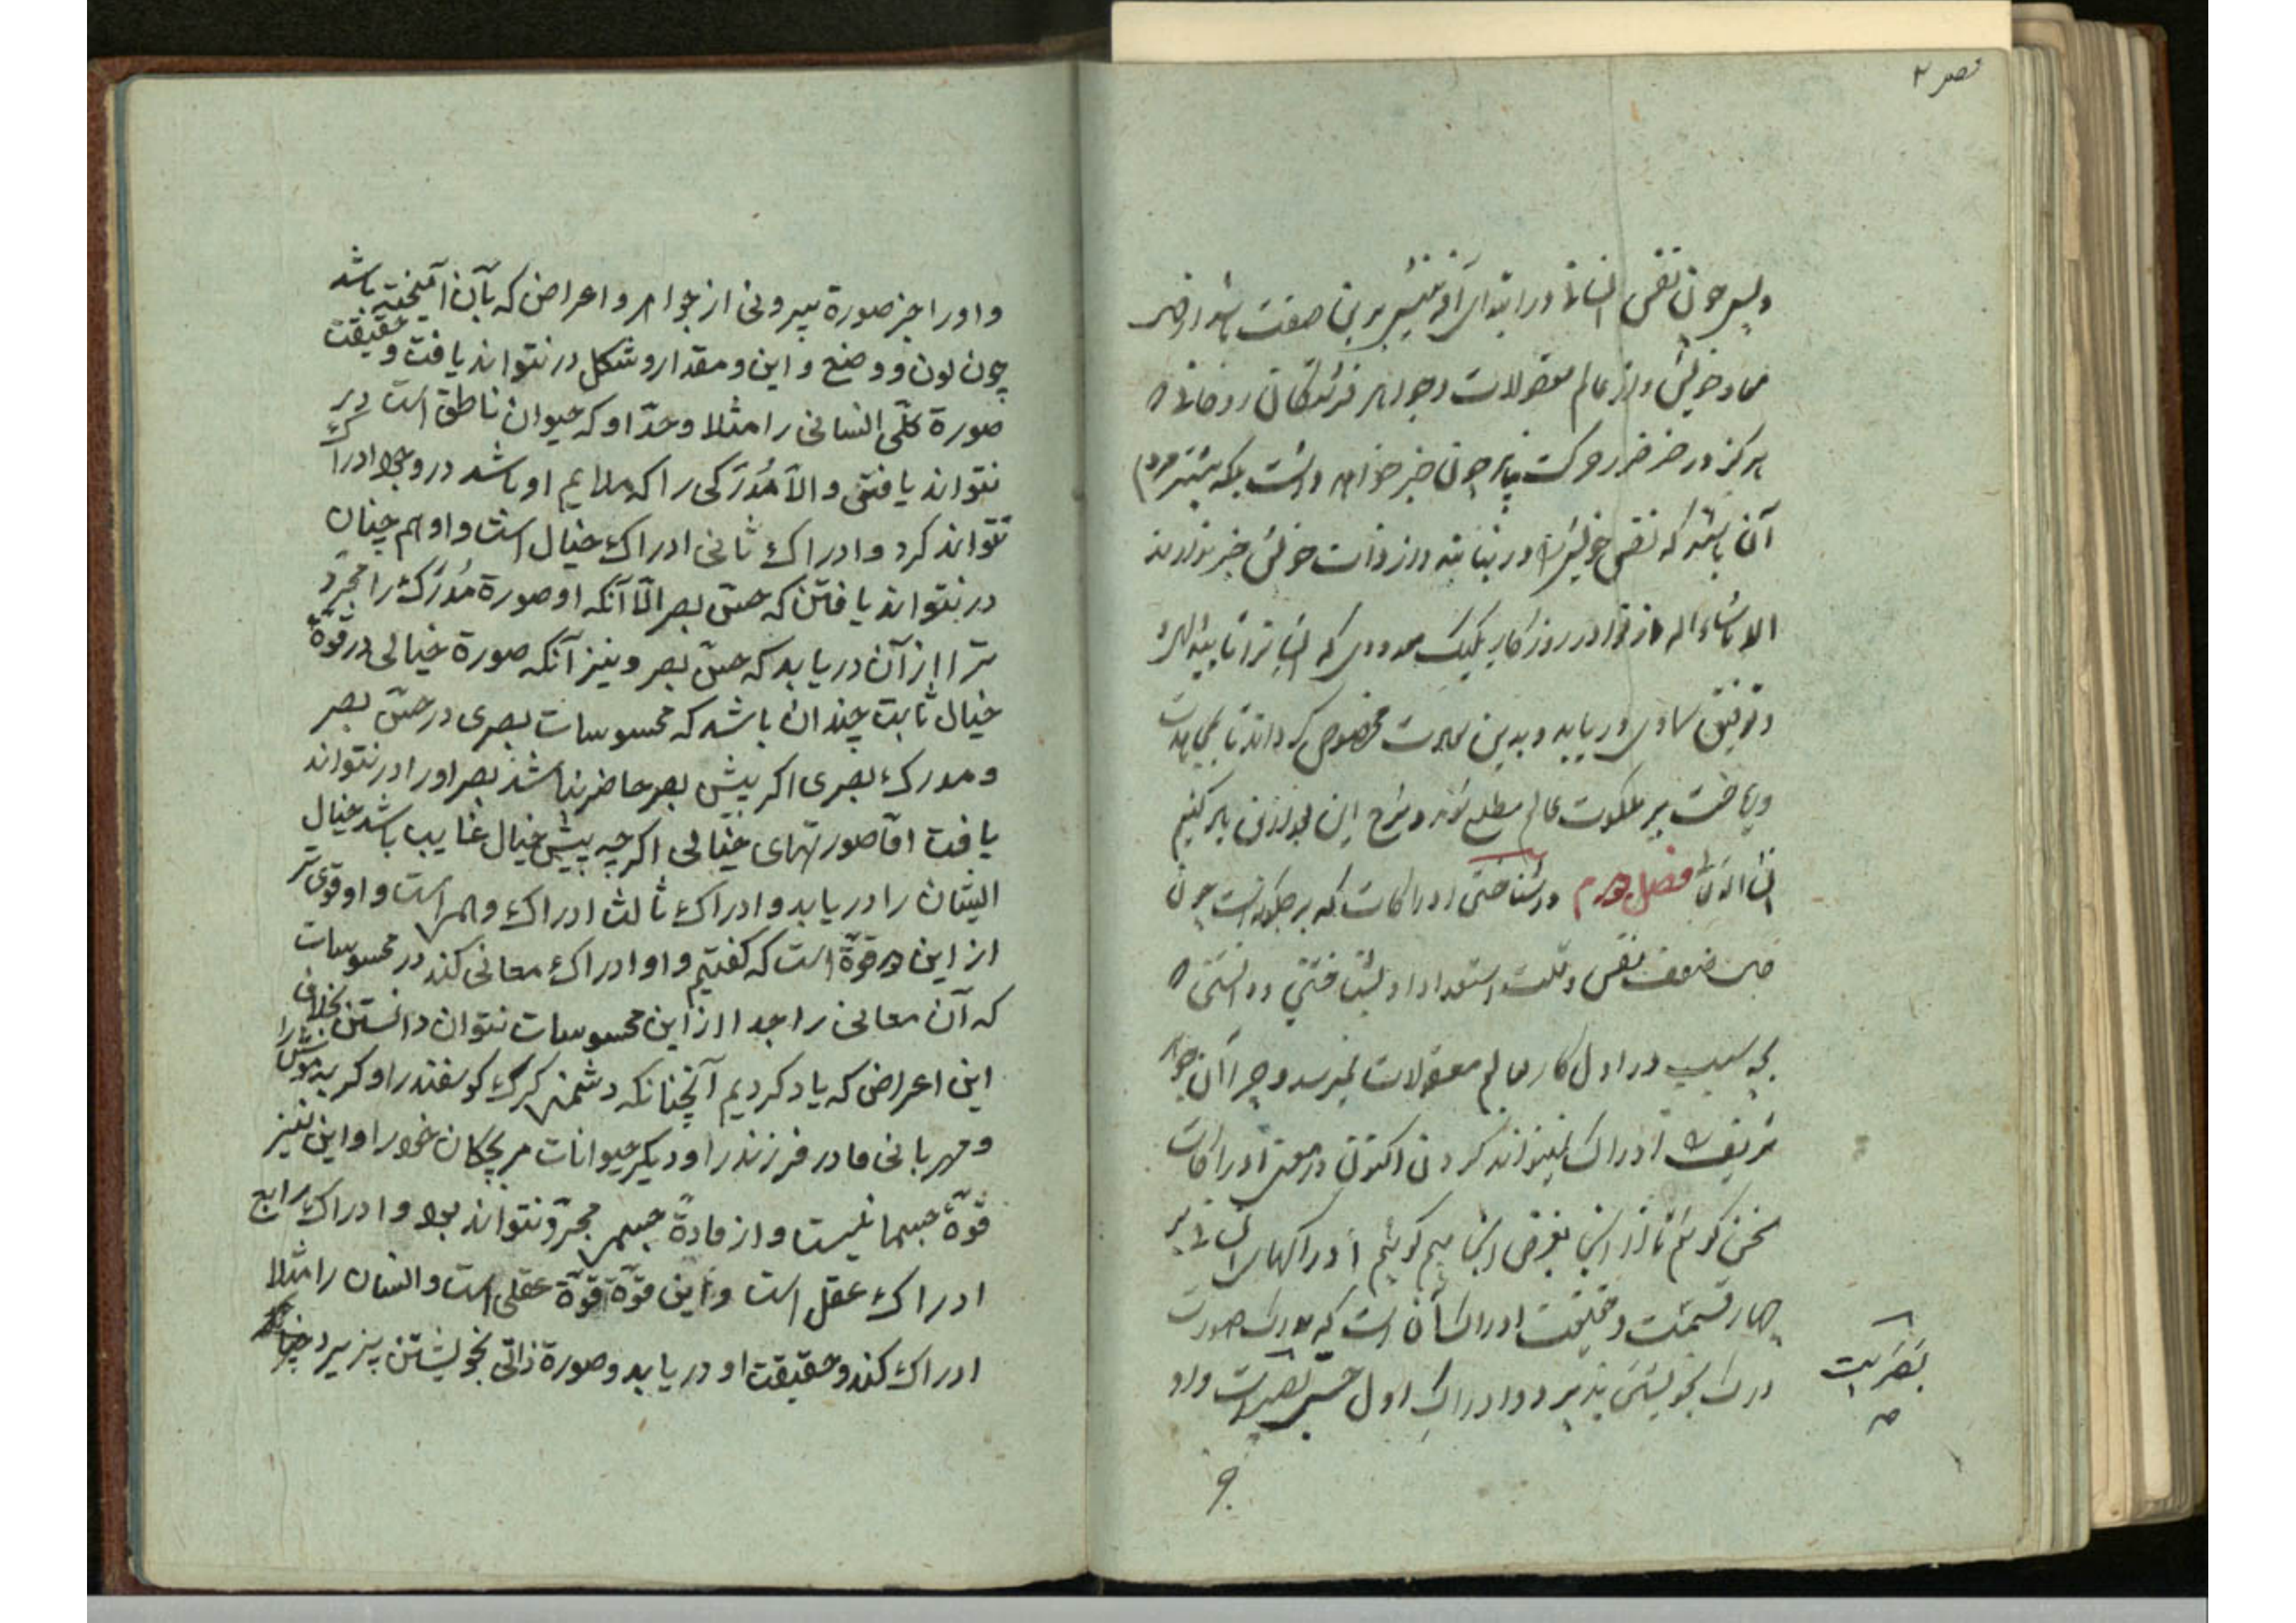 پس چون نفس انسانی در ابتدای آفرینش برین صفت باشد از
معاد خویش و از عالم معقولات وجواهر فرشتکان روحانی
هرکز در خبر چون خبر خواهد داشت بلکه بیشتر مردم
آن باشند که نفس خویش را در نیابند و از ذات خویش خبر ندارند
الا ما شاء الله در روزکار یک یک معدودی که ایشانرا تایید الهی
و توفیق سماوی دریابد و بدین سعادت مخصوص کرداند تا بمجاهدت
و ریاضت بر ملکوت عالم مطلع شوند و شرح این بعد ازین یاد کنیم
ان شاء الله فصل دوم در شناختن ادراکات که بر چکونه است چون
ضعف نفس و قلت استعداد او بشناختی و دانستی که
بچه سبب در اول کار بعالم معقولات نمیرسد و چرا آن جواهر
شریف را ادراک نمیتواند کردن اکنون در معنی ادراکات
سخن کوئیم تا از این بغرض رسیم کوئیم ادراکهای انسانی بر
چهار قسمست و حقیقت ادراک آن است که مدرک صورت
مدرک بخویشتن پذیرد و ادراک اول حس بصر است و او
بصریست
و اورا جز صورة بیرونی از جواهر و اعراض که بآن آمیخته باشد
چون لون و وضع و این و مقدار و شکل در نتواند یافت و حقیقت
صورة کلّی انسانی را مثلا و حدّ او که حیوان ناطق است در
نتواند یافتن و الّا مُدرَکی را که ملایم او باشد در وجود ادراک
نتواند کرد و ادراک ثانی ادراک خیال است و او هم چنان
در نتواند یافتن که حسّ بصر الّا آنکه او صورة مُدرَک را مجرّد
تر از آن دریابد که حسّ بصر و نیز آنکه صورة خیالی در قوّة
خیال ثابت چندان باشد که محسوسات بصری در حسّ بصر
و مدرک بصری اکر پیش بصر حاضر نباشد بصر اورا در نتواند
یافت امّا صورتهای خیالی اکرچه پیش خیال غایب باشد خیال
ایشان را دریابد و ادراک ثالث ادراک وهم است و او قوی تر
از این دو قوّة است که کفتیم و او ادراک معانی کند در محسوسات
که آن معانی را جدا از این محسوسات نتوان دانستن بخلاف
این اعراض که یاد کردیم آنچنانکه دشمنی کرک کوسفند را و کربه موش را
و مهربانی مادر فرزند را و دیکر حیوانات مر بچکان خود را و این نیز
قوّة جسمانیست و از مادّة جسم مجرّد نتواند بود و ادراک رابع
ادراک عقل است و این قوّة قوّة عقلی است و انسان را مثلا
ادراک کند و حقیقت او دریابد و صورة ذاتی بخویشتن پزیرد چنانکه